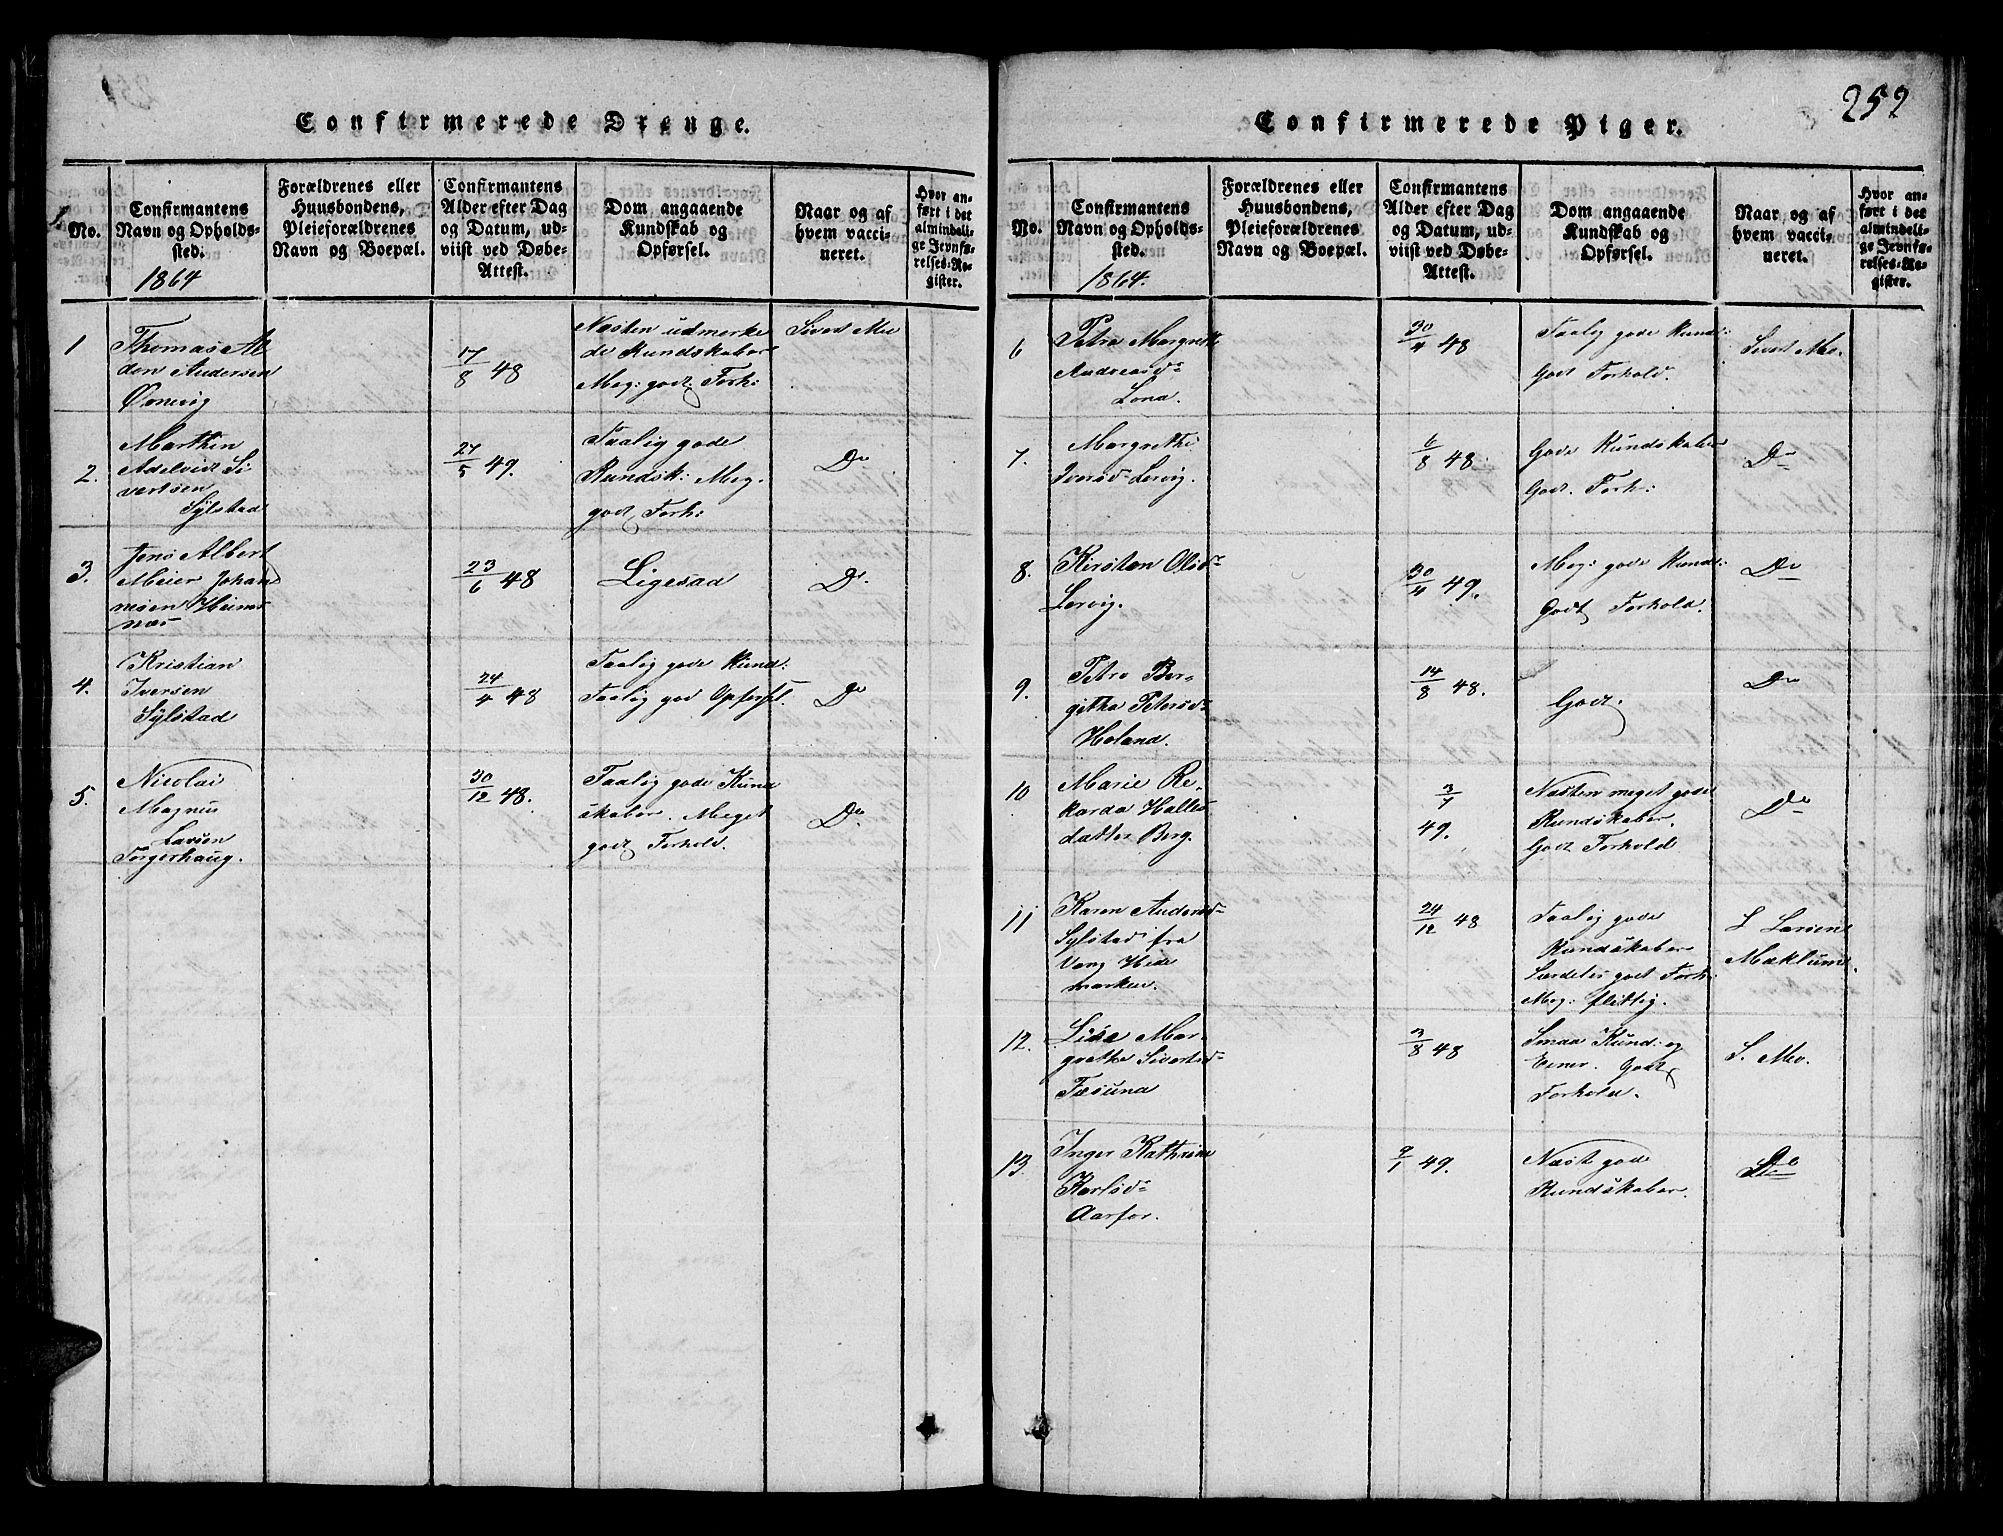 252
Confirmerede Drenge.
No.
Confirmantens Navn og Opholdssted.
1864
Forældrenes eller Huusbondens, Pleieforældrenes Navn og Boepæl.
Confirmantens Alder efter Dag og Datum, udviist ved Døbe-Attest.
Dom angaaende Kundskab og Opførsel.
Naar og af hvem vaccineret.
Hvor anført i det almindelige Jevnførelses-Register.
1
Thomas Al
don Andersen
17/8 48
Næsten udmerke
de Kundskaber
Meg: godt Forh:
Sivert Moe
2.
Marthin
Adelvidt Si
vertsen
Sylstad
27/5 49.
Taalig gode
Kundsk: Meg.
godt Forh:
Do
3.
Jens Albert
Meier Johan
nesen
23/6 48
Ligesaa
Do
4.
Kristian
Iversen
Sylstad
24/4 48
Taalig gode Kund:
Taalig god Opførsl.
Do
5.
Nicolai
Magnus
Larsen
Torgerhaug.
30/12 48.
Taalig gode Kund
skaber. Meget
godt Forhold.
Do
Confirmerede Piger.
No.
Confirmantens Navn og Opholdssted.
1864.
Forældrenes eller Huusbondens, Pleieforældrenes Navn og Boepæl.
Confirmantens Alder efter Dag og Datum, udviist ved Døbe-Attest.
Dom angaaende Kundskab og Opførsel.
Naar og af hvem vaccineret.
Hvor anført i det almindelige Jevnførelses-Register.
6
Petra Margrete
Andreasd
30/4 48
Taalig gode Kund:
Godt Forhold.
Sivert Moe.
7.
Margrethe
Iversd Lervig.
6/8 48.
Gode Kundskaber
Godt. Forh:
Do
8.
Kirsten Olsd
Lervig.
30/4 49.
Meg: gode Kund:
Godt Forhold.
Do
9.
Petra Ber-
githa Petersd
Holand.
14/8 48.
Godt.
Do
10
Marie Re-
karda Halles
datter Berg.
3/7
49.
Næsten meget gode
Kundskaber.
Godt Forhold
Do
11
Karen Andersd
Sylstad fra
Vang Hede
marken.
24/12 48
Taalig gode
Kundskaber
Særdeles godt Forh:
Meg: flittig.
L Larsen
12.
Lisa Mar
grethe Sivertsd
3/8 48
Smaa Kund: og
Evner. Godt
Forhold.
S. Moe.
13.
Inger Kathrine
Karlsd
Aarfor.
9/1 49.
Næst gode
Kundskaber.
Do